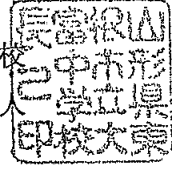 校
山形県東
根市立大
富中学校
長之印